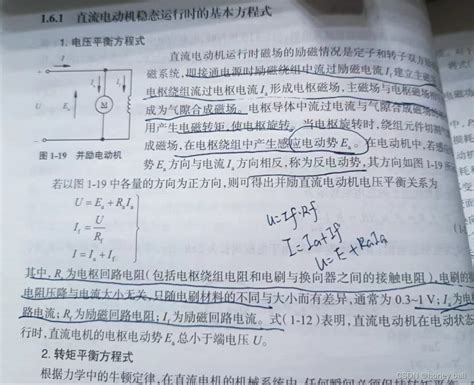 1.6.1 直流电动机稳态运行时的基本方程式
1. 电压平衡方程式
直流电动机运行时磁场的励磁情况是定子和转子双方励
磁系统,即接通电源时励磁绕组中流过励磁电流 I_f,建立主磁
电枢绕组流过电枢电流 I_a 形成电枢磁场,主磁场与电枢磁场
成为气隙合成磁场。电枢导体中流过电流与气隙合成磁场
用产生电磁转矩,使电枢旋转。当电枢旋转时,绕组元件切割
成磁场,在电枢绕组中产生感应电动势 E_a。在电动机中,若感
势 E_a 方向与电流 I_a 方向相反,称为反电动势,其方向如图 1-19 所
I
I_a
I_f
U
E_a
M
图 1-19 并励电动机
若以图 1-19 中各量的方向为正方向,则可得出并励直流电动机电压平衡关系为
U = E_a + R_a I_a
I_f = U/R_f
I = I_a + I_f
U=If·Rf
I=Ia+If
U=E+RaIa
其中,R_a 为电枢回路电阻(包括电枢绕组电阻和电刷与换向器之间的接触电阻),电刷的
电阻压降与电流大小无关,只随电刷材料的不同与大小而有差异,通常为 0.3~1 V;I_a 为电
路电流;R_f 为励磁回路电阻;I_f 为励磁回路电流。式(1-12)表明,直流电动机在电动状态
行时,直流电机的电枢电动势 E_a 总小于端电压 U。
2. 转矩平衡方程式
根据力学中的牛顿定律,在直流电机的机械系统中,任何瞬间必须保持转矩平
CSDN @honey ball